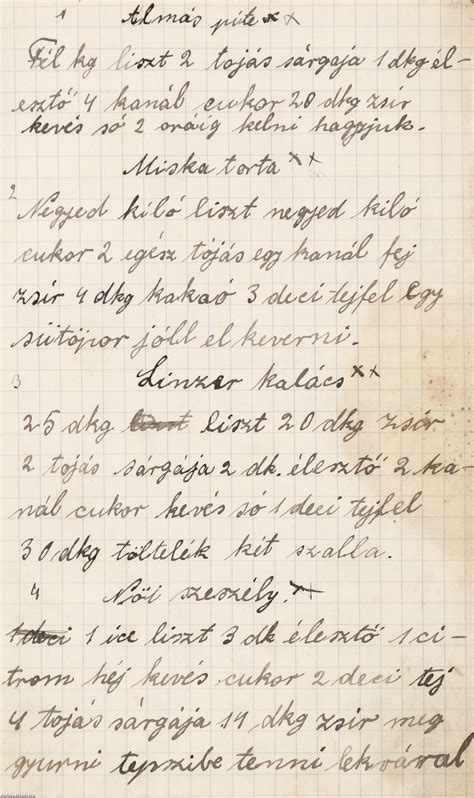 1 Almás pite xx
Fél kg liszt 2 tojás sárgája 1 dkg él-
esztő 4 kanál cukor 20 dkg zsír
kevés só 2 oráig kelni hagyjuk.
Miska torta xx
2 Négyed kiló liszt negyed kiló
cukor 2 egész tojás egy kanál fej
zsír 4 dkg kakaó 3 deci tejfel egy
sütöpor jóll el keverni.
3 Linzer kalács xx
25 dkg liszt liszt 20 dkg zsír
2 tojás sárgája 2 dk. élesztő 2 ka-
nál cukor kevés só 1 deci tejfel
30 dkg töltelék két szalla.
4 Női szeszély. xx
1 deci 1 ice liszt 3 dk élesztő 1 ci-
trom héj kevés cukor 2 deci tej
4 tojás sárgája 14 dkg zsir meg
gyurni tepszibe tenni lekvárral